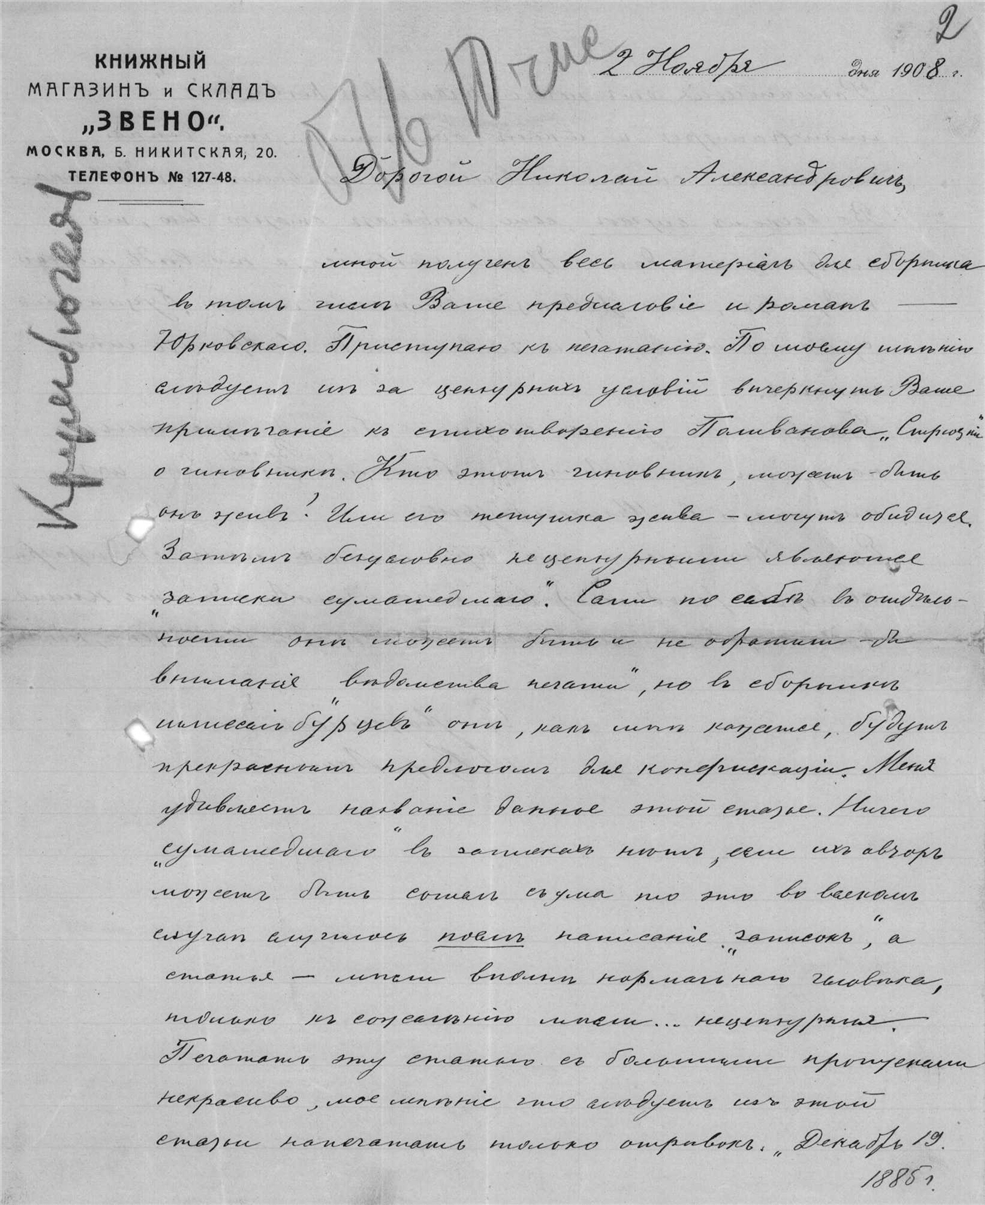 2
КНИЖНЫЙ
МАГАЗИНЪ и СКЛАДЪ
„ЗВЕНО“.
МОСКВА, Б. НИКИТСКАЯ, 20.
ТЕЛЕФОНЪ № 127-48.
2 Ноября дня 1908 г.
Дорогой Николай Александровичъ,
мной полученъ весь матеріалъ для сборника
въ томъ числѣ Ваше предисловіе и романъ —
Юрковскаго. Приступаю къ печатанію. По моему мнѣнію
слѣдуетъ изъ за цензурныхъ условій вычеркнуть Ваше
примѣчаніе къ стихотворенію Поливанова
о чиновникѣ. Кто этотъ чиновникъ, можетъ-быть
онъ живъ? Или его тетушка жива – могутъ обидиться.
Затѣмъ безусловно нецензурными являются
„записки сумашедшаго“. Сами по себѣ въ отдѣль-
ности онѣ можетъ быть и не обратили-бы
вниманія „вѣдомства печати“, но въ сборникѣ
шлиссельбуржцевъ онѣ, какъ мнѣ кажется, будутъ
прекраснымъ предлогомъ для конфискаціи. Меня
удивляетъ названіе данное этой статьѣ. Ничего
„сумашедшаго“ въ запискахъ нѣтъ, если ихъ авторъ
можетъ быть сошелъ съ ума то это во всякомъ
случаѣ случилось послѣ написанія „записокъ“, а
статья – мысли вполнѣ нормальнаго человѣка,
только къ сожалѣнію мысли... нецензурныя.
Печатать эту статью съ большими пропусками
некрасиво, мое мнѣніе что слѣдуетъ изъ этой
статьи напечатать только отрывокъ. „Декабрь 19.
1885 г.